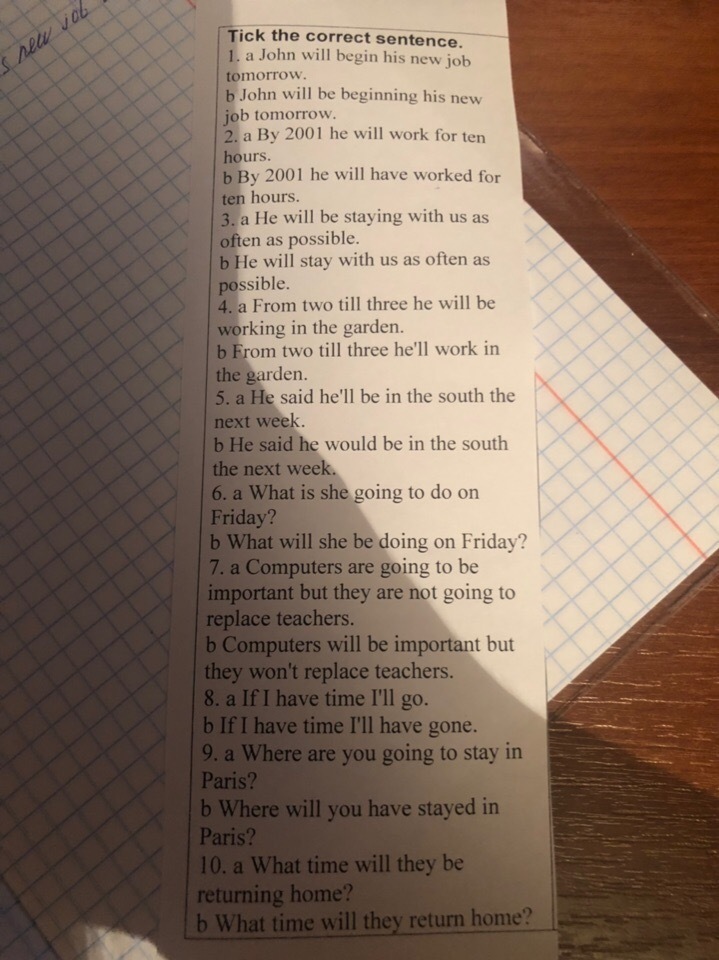 s new job
Tick the correct sentence.
1. a John will begin his new job
tomorrow.
b John will be beginning his new
job tomorrow.
2. a By 2001 he will work for ten
hours.
b By 2001 he will have worked for
ten hours.
3. a He will be staying with us as
often as possible.
b He will stay with us as often as
possible.
4. a From two till three he will be
working in the garden.
b From two till three he'll work in
the garden.
5. a He said he'll be in the south the
next week.
b He said he would be in the south
the next week.
6. a What is she going to do on
Friday?
b What will she be doing on Friday?
7. a Computers are going to be
important but they are not going to
replace teachers.
b Computers will be important but
they won't replace teachers.
8. a If I have time I'll go.
b If I have time I'll have gone.
9. a Where are you going to stay in
Paris?
b Where will you have stayed in
Paris?
10. a What time will they be
returning home?
b What time will they return home?